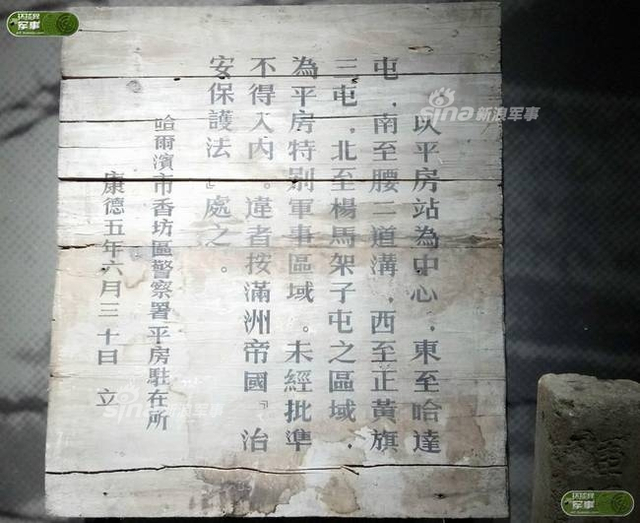 以平房站為中心，東至哈達
屯，南至腰二道溝，西至正黃旗
三屯，北至楊馬架子屯之區域，
為平房特別軍事區域。未經批準
不得入內。違者按滿洲帝國『治
安保護法』處之。
哈爾濱市香坊區警察署平房駐在所
康德五年六月三十日 立
sina新浪军事
sina新浪军事
军事
军事
军事